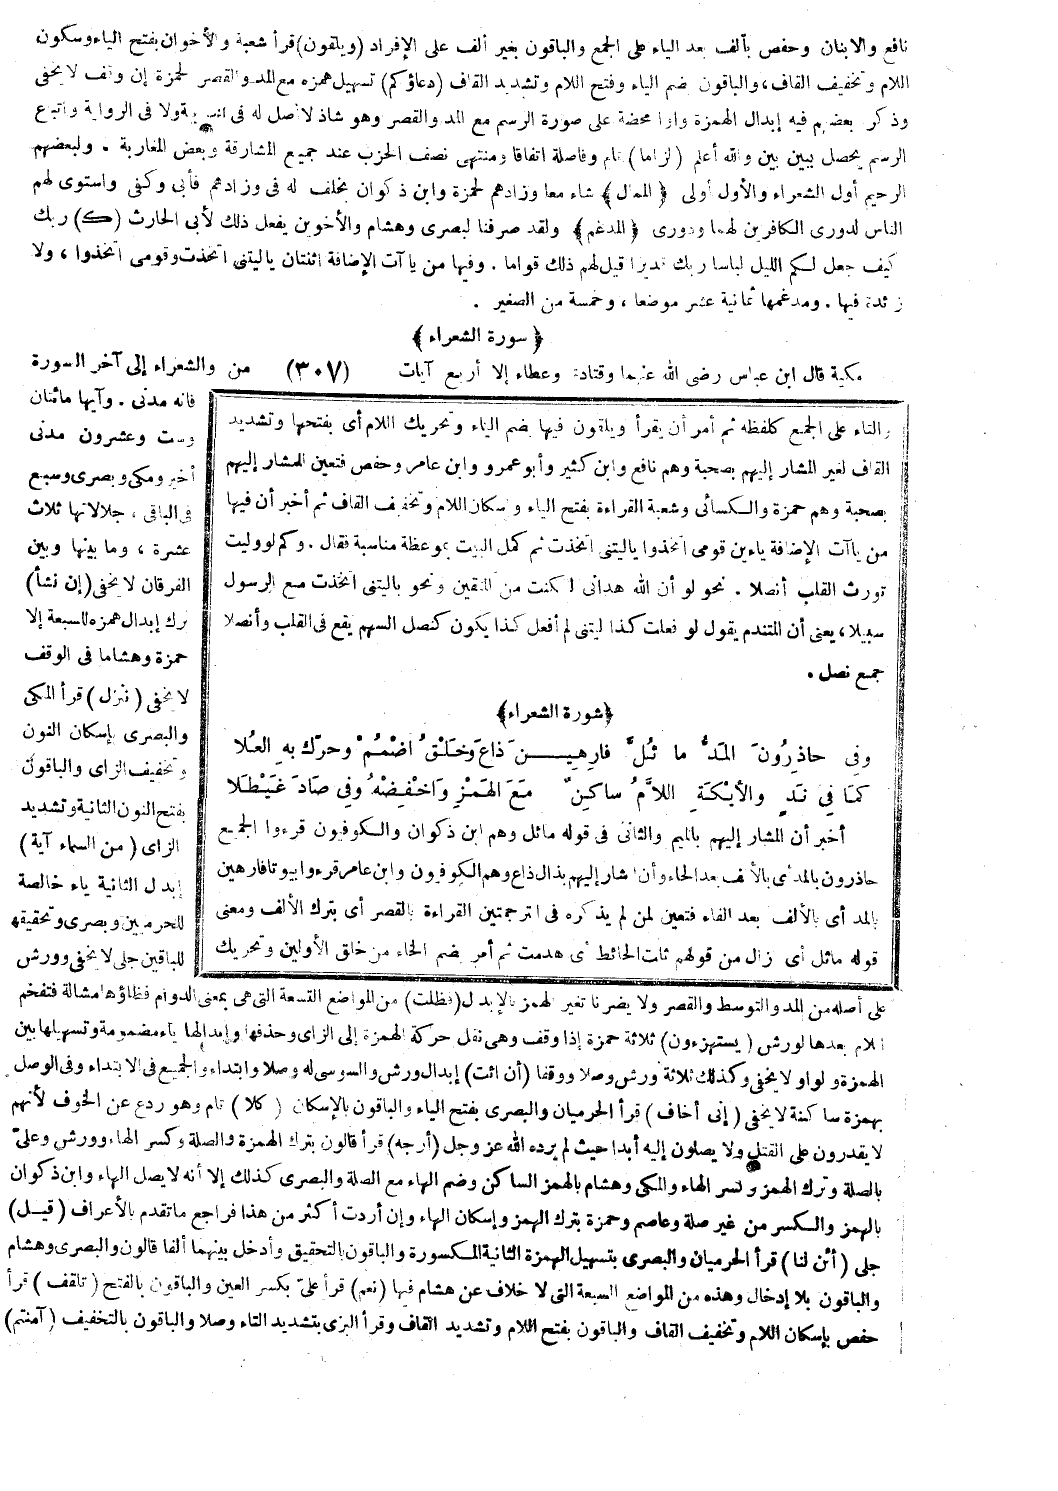 نافع والابنان وحفص بألف بعد الياء على الجمع والباقون بغير ألف على الإفراد (ويلقون) قرأ شعبة والأخوان بفتح الياء وسكون
اللام وتخفيف القاف، والباقون بضم الياء وفتح اللام وتشديد القاف (دعاؤكم) تسهيل همزه مع المد والقصر لحمزة إن وقف لا يخفى
وذكر بعضهم فيه إبدال الهمزة واوا محضة على صورة الرسم مع المد والقصر وهو شاذ لا أصل له فى العربية ولا فى الرواية واتباع
الرسم يحصل ببين بين والله أعلم (لزاما) تام وفاصلة اتفاقا ومنتهى نصف الحزب عند جميع المشارقة وبعض المغاربة . ولبعضهم
الرحيم أول الشعراء والأول أولى ﴿الممال﴾ شاء معا وزادهم لحمزة وابن ذكوان بخلف له فى وزادهم فأبى وكفى واستوى لهم
الناس لدورى الكافرين لهما ودورى ﴿المدغم﴾ ولقد صرفنا لبصرى وهشام والأخوين يفعل ذلك لأبى الحارث (ك) ربك
كيف جعل لكم الليل لباسا ربك قديرا قيل لهم ذلك قواما . وفيها من ياآت الإضافة اثنتان ياليتنى اتخذت وقومى اتخذوا ، ولا
زائدة فيها . ومدغمها ثمانية عشر موضعا ، وخمسة من الصغير .
﴿ سورة الشعراء ﴾
مكية قال ابن عباس رضى الله عنهما وقتادة وعطاء إلا أربع آيات (٣٠٧) من والشعراء إلى آخر السورة
فانه مدنى . وآيها مائتان
وست وعشرون مدنى
أخير ومكى وبصرى وسبع
فى الباقى ، جلالاتها ثلاث
عشرة ، وما بينها وبين
الفرقان لا يخفى (إن نشأ)
ترك إبدال همزه للسبعة إلا
حمزة وهشاما فى الوقف
لا يخفى (ننزل) قرأ المكى
والبصرى بإسكان النون
وتخفيف الزاى والباقون
بفتح النون الثانية وتشديد
الزاى (من السماء آية)
إبدال الثانية ياء خالصة
للحرميين وبصرى وتحقيقها
للباقين جلى لا يخفى وورش
والتاء على الجمع كلفظه ثم أمر أن يقرأ ويلقون فيها بضم الياء وتحريك اللام أى بفتحها وتشديد
القاف لغير المشار إليهم بصحبة وهم نافع وابن كثير وأبو عمرو وابن عامر وحفص فتعين للمشار إليهم
بصحبة وهم حمزة والكسائى وشعبة القراءة بفتح الياء وإسكان اللام وتخفيف القاف ثم أخبر أن فيها
من ياآت الإضافة ياءين قومى اتخذوا ياليتنى اتخذت ثم كمل البيت بموعظة مناسبة فقال . وكم لو وليت
تورث القلب أنصلا . نحو لو أن الله هدانى لكنت من المتقين ونحو ياليتنى اتخذت مع الرسول
سبيلا ، يعنى أن المتندم يقول لو فعلت كذا ليتنى لم أفعل كذا يكون كنصل السهم يقع فى القلب وأنصلا
جمع نصل .
﴿سورة الشعراء﴾
وفى حاذِرُونَ المَدُّ ما ثُلَّ فارِهِينَ ذَاعَ وَخَلْقُ اضْمُمْ وحرّك بهِ العُلا
كمَا فِي نَدٍ والأيْكَةِ اللاَّمُ ساكِنٌ مَعَ الهَمْزِ وَاخْفِضْهُ وفِى صَادَ غَيْطَلا
أخبر أن المشار إليهم بالميم والثانى فى قوله ماثل وهم ابن ذكوان والكوفيون قرءوا لجميع
حاذرون بالمد أى بالألف بعد الحاء وأن المشار إليهم بذال ذاع وهم الكوفيون وابن عامر قرءوا بيوتا فارهين
بالمد أى بالألف بعد الفاء فتعين لمن لم يذكره فى الترجمتين القراءة بالقصر أى بترك الألف ومعنى
قوله ماثل أى زال من قولهم ثلت الحائط أى هدمت ثم أمر بضم الخاء من خلق الأولين وتحريك
على أصله من المد والتوسط والقصر ولا يضرنا تغير الهمز بالإبدال (فظلت) من المواضع التسعة التى هى بمعنى الدوام فظاؤها مشالة فتفخم
اللام بعدها لورش (يستهزءون) ثلاثة حمزة إذا وقف وهى نقل حركة الهمزة إلى الزاى وحذفها وإبدالها ياء مضمومة وتسهيلها بين
الهمزة والواو لا يخفى وكذلك ثلاثة ورش وصلا ووقفا (أن ائت) إبدال ورش والسوسى له وصلا وابتداء والجميع فى الابتداء وفى الوصل
بهمزة ساكنة لا يخفى (إنى أخاف) قرأ الحرميان والبصرى بفتح الياء والباقون بالإسكان (كلا) تام وهو ردع عن الخوف لأنهم
لا يقدرون على القتل ولا يصلون إليه أبدا حيث لم يرده الله عز وجل (أرجه) قرأ قالون بترك الهمزة والصلة وكسر الهاء، وورش وعلىّ
بالصلة وترك الهمز وكسر الهاء والمكى وهشام بالهمز الساكن وضم الهاء مع الصلة والبصرى كذلك إلا أنه لا يصل الهاء وابن ذكوان
بالهمز والكسر من غير صلة وعاصم وحمزة بترك الهمز وإسكان الهاء وإن أردت أكثر من هذا فراجع ما تقدم بالأعراف (قيل)
جلى (أئن لنا) قرأ الحرميان والبصرى بتسهيل الهمزة الثانية المكسورة والباقون بالتحقيق وأدخل بينهما ألفا قالون والبصرى وهشام
والباقون بلا إدخال وهذه من المواضع السبعة التى لا خلاف عن هشام فيها (نعم) قرأ علىّ بكسر العين والباقون بالفتح (تلقف) قرأ
حفص بإسكان اللام وتخفيف القاف والباقون بفتح اللام وتشديد القاف وقرأ البزى بتشديد التاء وصلا والباقون بالتخفيف (آمنتم)